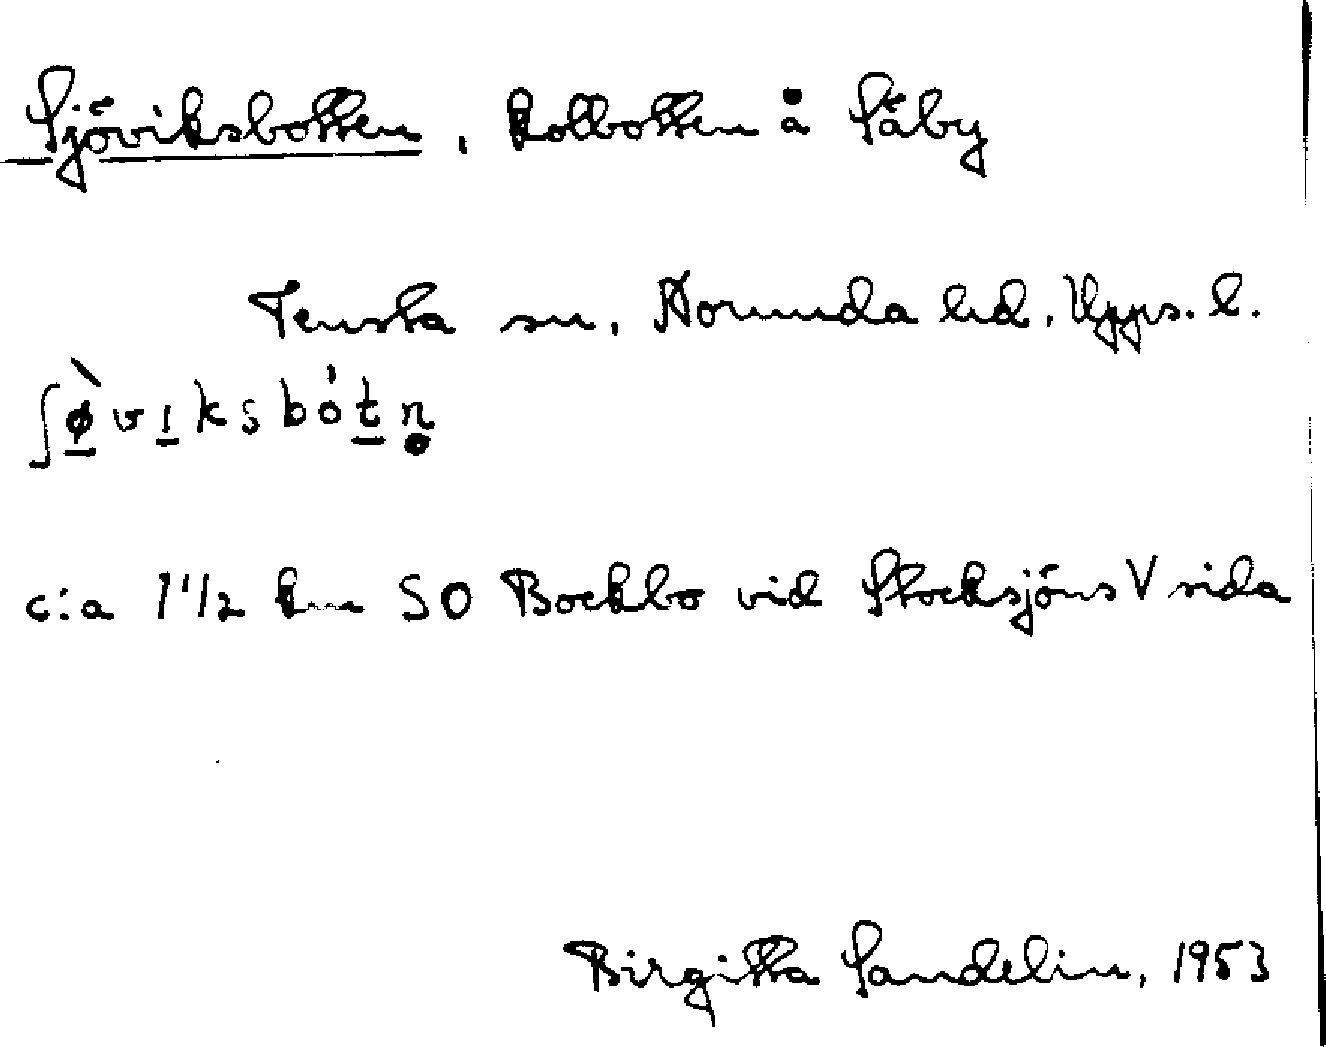 Sjöviksbotten, kolbotten å Säby
Tensta sn, Norunda hd, Upps. l.
ʃø̠̀vı̠ksbót̠n̥
c:a 1 1/2 km SO Bockbo vid Stocksjöns V sida
Birgitta Sandelin, 1953